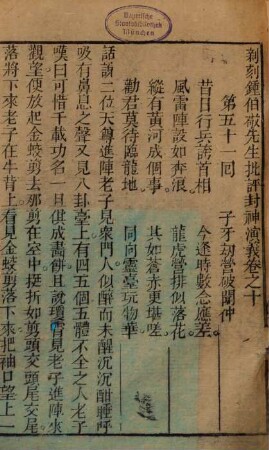 Bayerische
Staatsbibliothek
München
新刻鍾伯敬先生批評封神演義卷之十
第五十一回　子牙刼營破聞仲
昔日行兵誇首相　今逢時數念應差
風雷陣設如奔浪　龍虎營排似落花
縱有黃河成個事　其如蒼赤更堪嗟
勸君莫待臨龍地　同向靈臺玩物華
話說二位天尊進陣老子見衆門人似醉而未醒沉沉酣睡呼
吸有鼻息之聲又見八卦臺上有四五個五體不全之人老子
嘆曰可惜千載功名一旦俱成畵餅且說瓊霄見老子進陣來
觀望便放起金蛟剪去那剪在空中挺折如剪頭交頭尾交尾
落將下來老子在牛背上看見金蛟剪落下來把袖口望上一